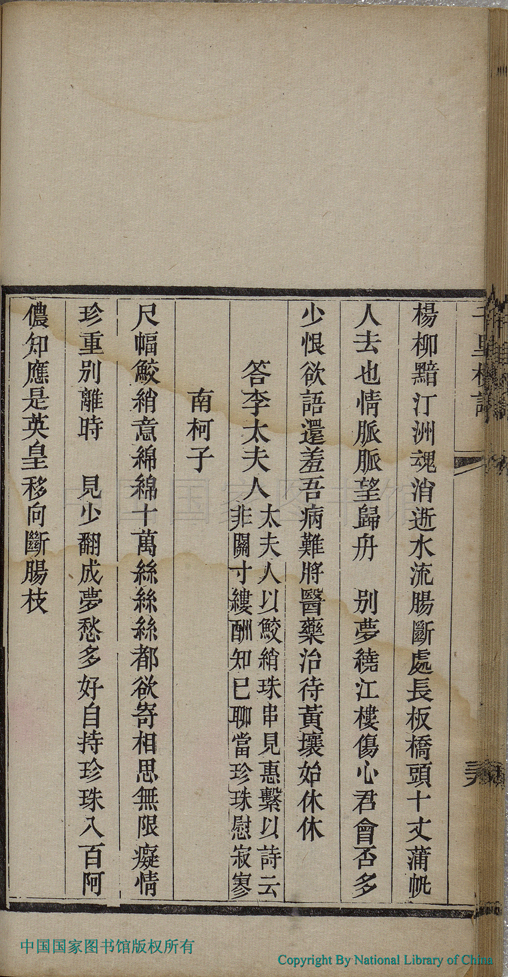 楊柳黯汀洲魂消逝水流腸斷處長板橋頭十丈蒲帆
人去也情脈脈望歸舟　別夢繞江樓傷心君會否多
少恨欲語還羞吾病難將醫藥治待黃壤始休休
答李太夫人太夫人以鮫綃珠串見惠繫以詩云
非關寸縷酬知已聊當珍珠慰寂寥
南柯子
尺幅鮫綃意綿綿十萬絲絲絲都欲寄相思無限癡情
珍重別離時　見少翻成夢愁多好自持珍珠入百阿
儂知應是英皇移向斷腸枝
中国国家图书馆版权所有
Copyright By National Library of China